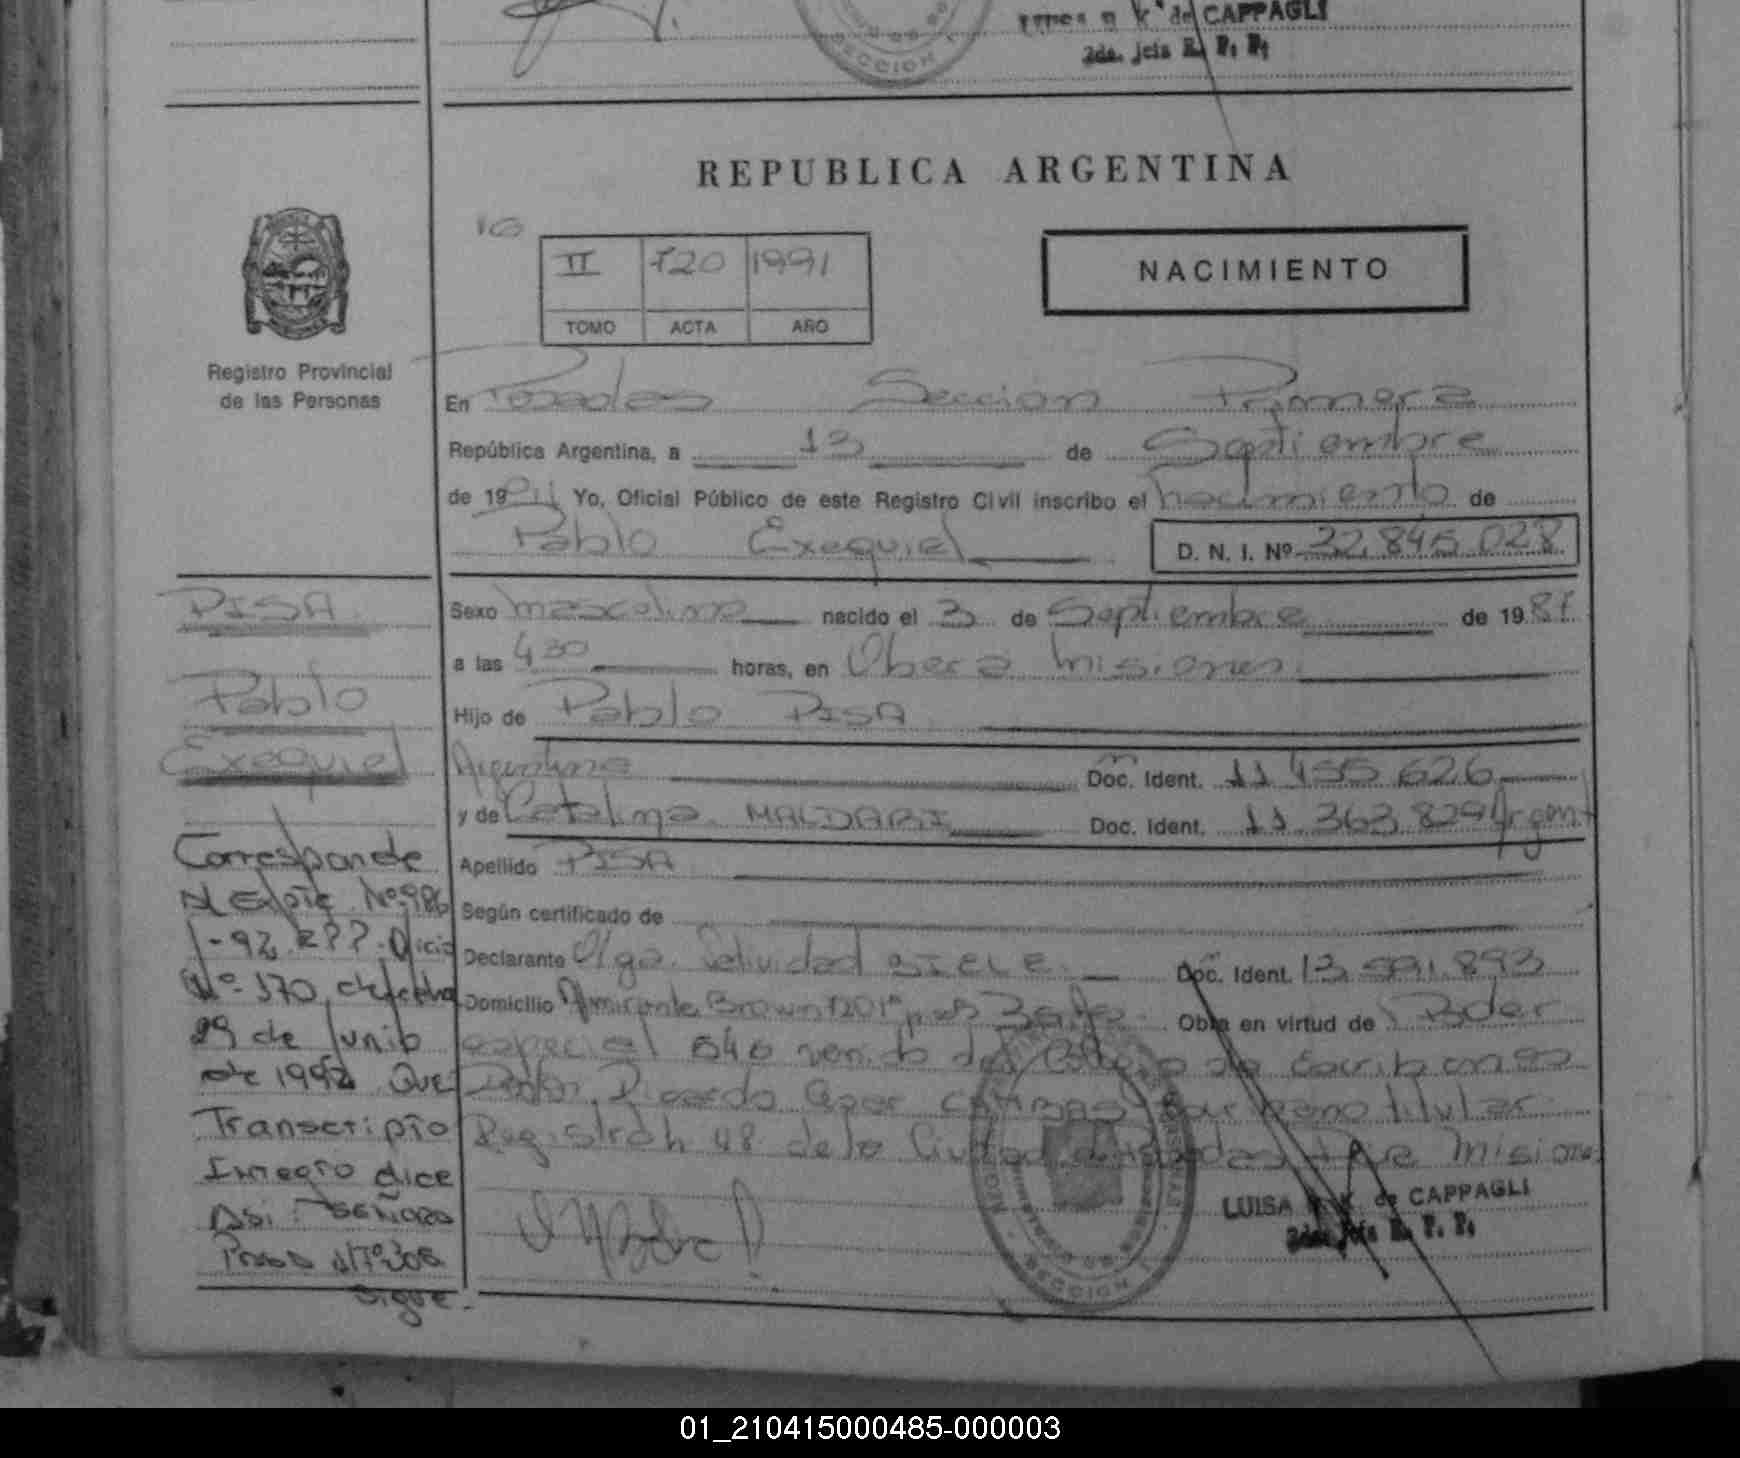 de CAPPAGLI
2da. Jefa R. P. P.
SECCION 1
REPUBLICA ARGENTINA
II 720 1991
TOMO ACTA AÑO
NACIMIENTO
Registro Provincial
de las Personas
En Posadas Seccion Primera
República Argentina, a 13 de Septiembre
de 19 Yo, Oficial Público de este Registro Civil inscribo el nacimiento de
Pablo Exequiel D. N. I. Nº 32.845.028
PISA
Pablo
Exequiel
Sexo masculino nacido el 3 de Septiembre de 19 87
a las 4 30 horas, en Obera Misiones
Hijo de Pablo PISA
Argentino Doc. Ident. 11 455 626
y de Catalina MALDARI Doc. Ident. 11.363.829 Argent
Apellido PISA
Según certificado de
Declarante Olga Natividad Doc. Ident. 13.591.893
Domicilio Almirante Brown 1201 Obra en virtud de Poder
especial 646 venido del Colegio de Escribanos
Ricardo Cesar titular
Registro N 48 de la Ciudad de Posadas Misiones
Corresponde
Al Expte Nº 986
Oficio
Nº 370, de fecha
29 de Junio
de 1992 Que
Transcripto
Integro dice
Asi: SEÑORA
Sigue.
LUISA K. de CAPPAGLI
2da. Jefa R. P. P.
SECCION 1
01_210415000485-000003